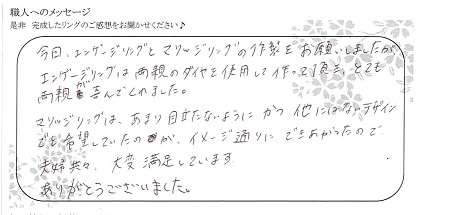 職人へのメッセージ
是非 完成したリングのご感想をお聞かせください♪
今回、エンゲージリングとマリッジリングの作製をお願いしましたが
エンゲージリングは両親のダイヤを使用して作って頂き、とても
両親が喜んでくれました。
マリッジリングは、あまり目立たないように かつ 他にはないデザイン
でを希望していたのが、イメージ通りに できあがったので
夫婦共々、大変満足しています
ありがとうございました。